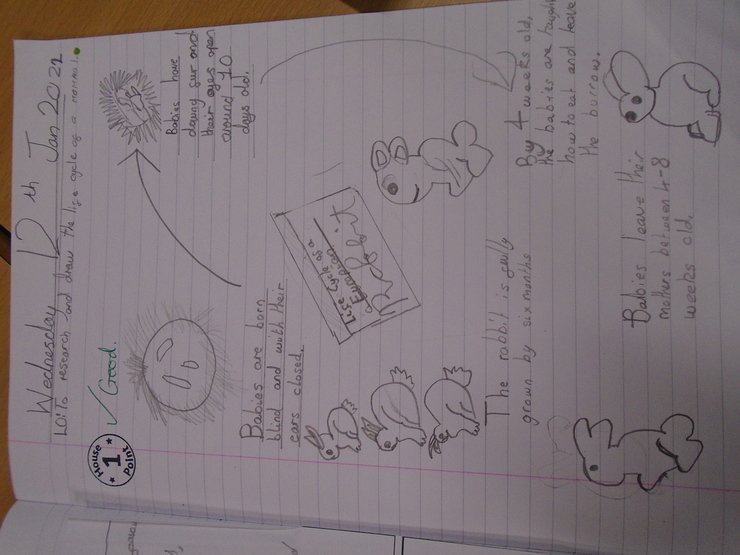 Wednesday 12th Jan 2022
LO: To research and draw the life cycle of a mammal.
House
1
Point
✓ Good.
Babies have
daung fur and
their eyes open
around 10
days old.
Babies are born
blind and with their
ears closed.
Life cycle of a
European
Rabbit
By 4 weeks old,
the babies are taught
how to eat and leave
the burrow.
Babies leave their
mothers between 4-8
weeks old.
The rabbit is fully
grown by six months